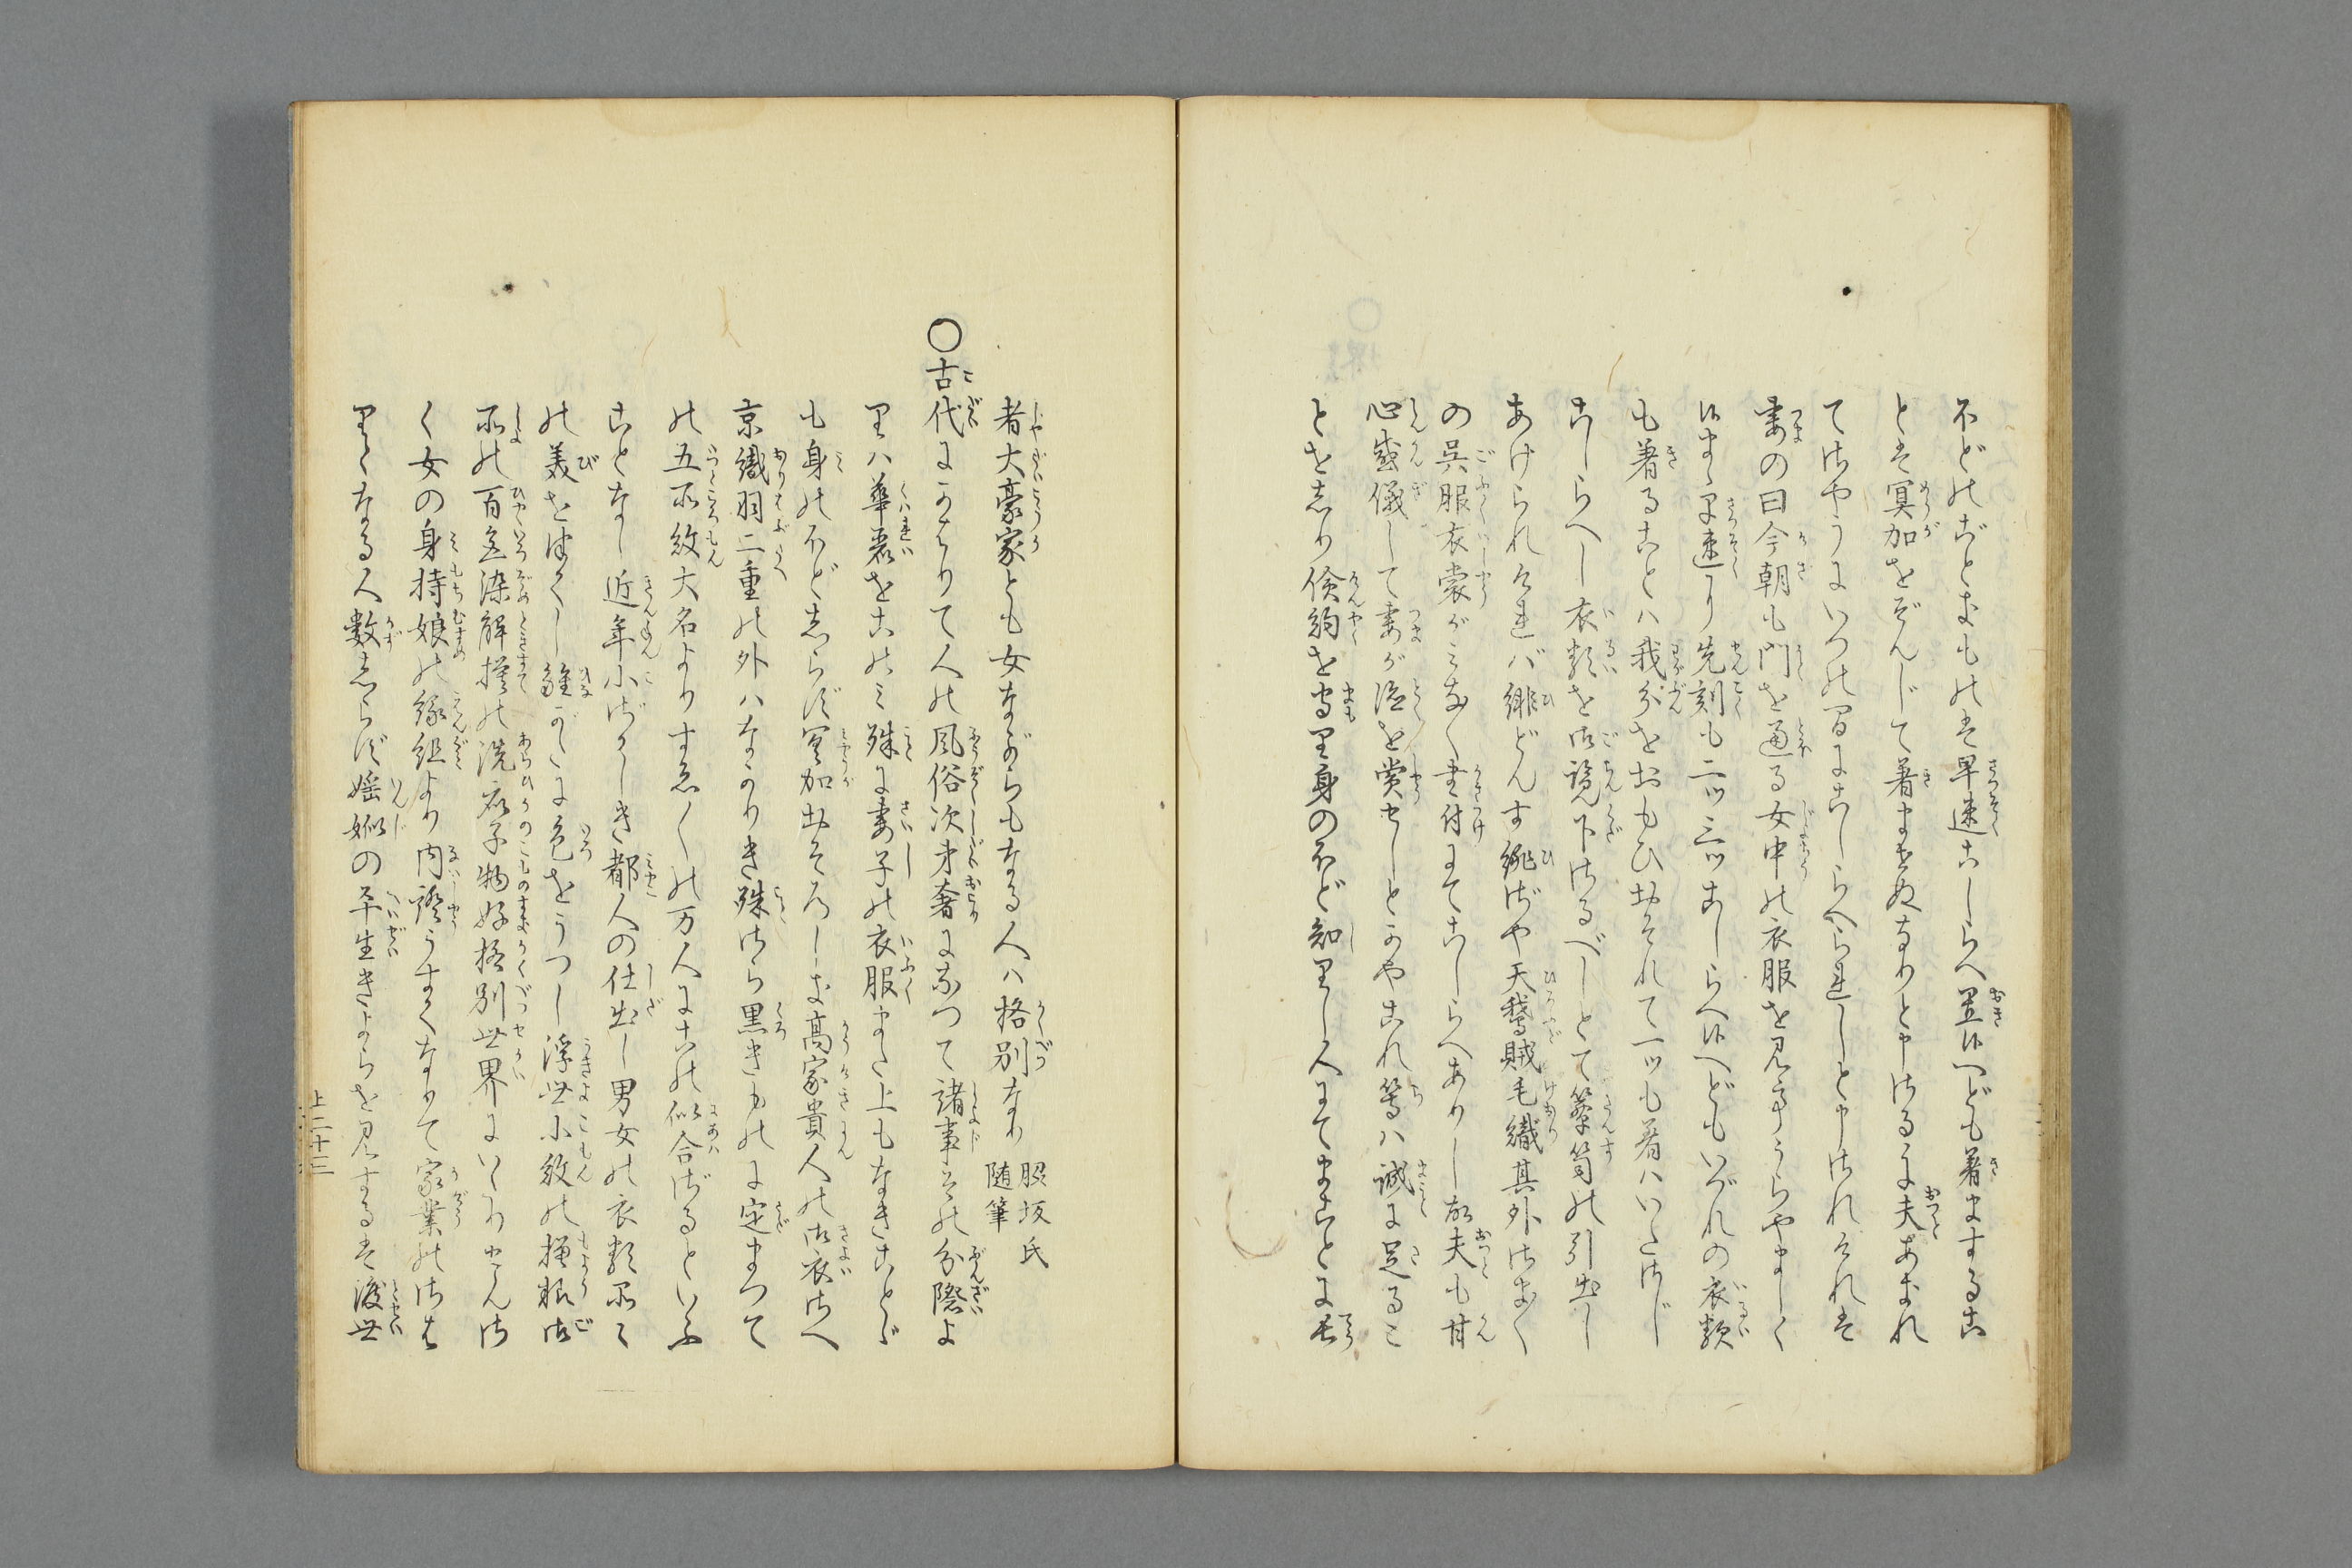 不どのごとまものは早速こしらへ置候へども着まする
とは冥加をぞんじて着ませぬなりと申ける に夫あまれ
てはやうにいつの間にこしらへられしと申されそれは
妻の曰今朝も門を通る女中の衣服を見てうらやましく
候まゝ早速より先刻も二ッ三ッこしらへ候へどもいづれの衣類
も着ることハ我分をおもひおそれて一ッも着ハいたさじ
こしらへし衣類を御覧下さるべしとて箪笥の引出し
あけられければ緋どんす緋ざや天鵞賊毛織其外さまく
の呉服衣裳がみな〳〵書付にてこしらへありし故夫も甘
心感儀して妻が徳を賞せしとかやこれ等ハ誠に足るこ
とをしり倹約を守り身のほど知りし人にてまことに長
者大豪家とも女ながらもなる人ハ格別なり
股坂氏
随筆
〇古代にかはりて人の風俗次才奢になつて諸事その分際よ
りハ華麗をこのミ殊に妻子の衣服また上もなきことゞ
も身のほどしらず冥加おそろしき高家貴人の御衣さへ
京織羽二重の外ハなかりき殊さら黒きものに定まつて
の五所紋大名よりすゑ〴〵の万人にこの似合ざるといふ
ことなし近年小ざかしき都人の仕出し男女の衣類品々
の美をつくし雛がたに色をうつし浮世小紋の模様御
所の百色染解捨の洗鹿子物好格別世界にいたりせんさ
く女の身持娘の縁組より内證うすくなりて家業のさは
りとなる人数しらず婬娰の平生きよらを見するは渡世
上二十三